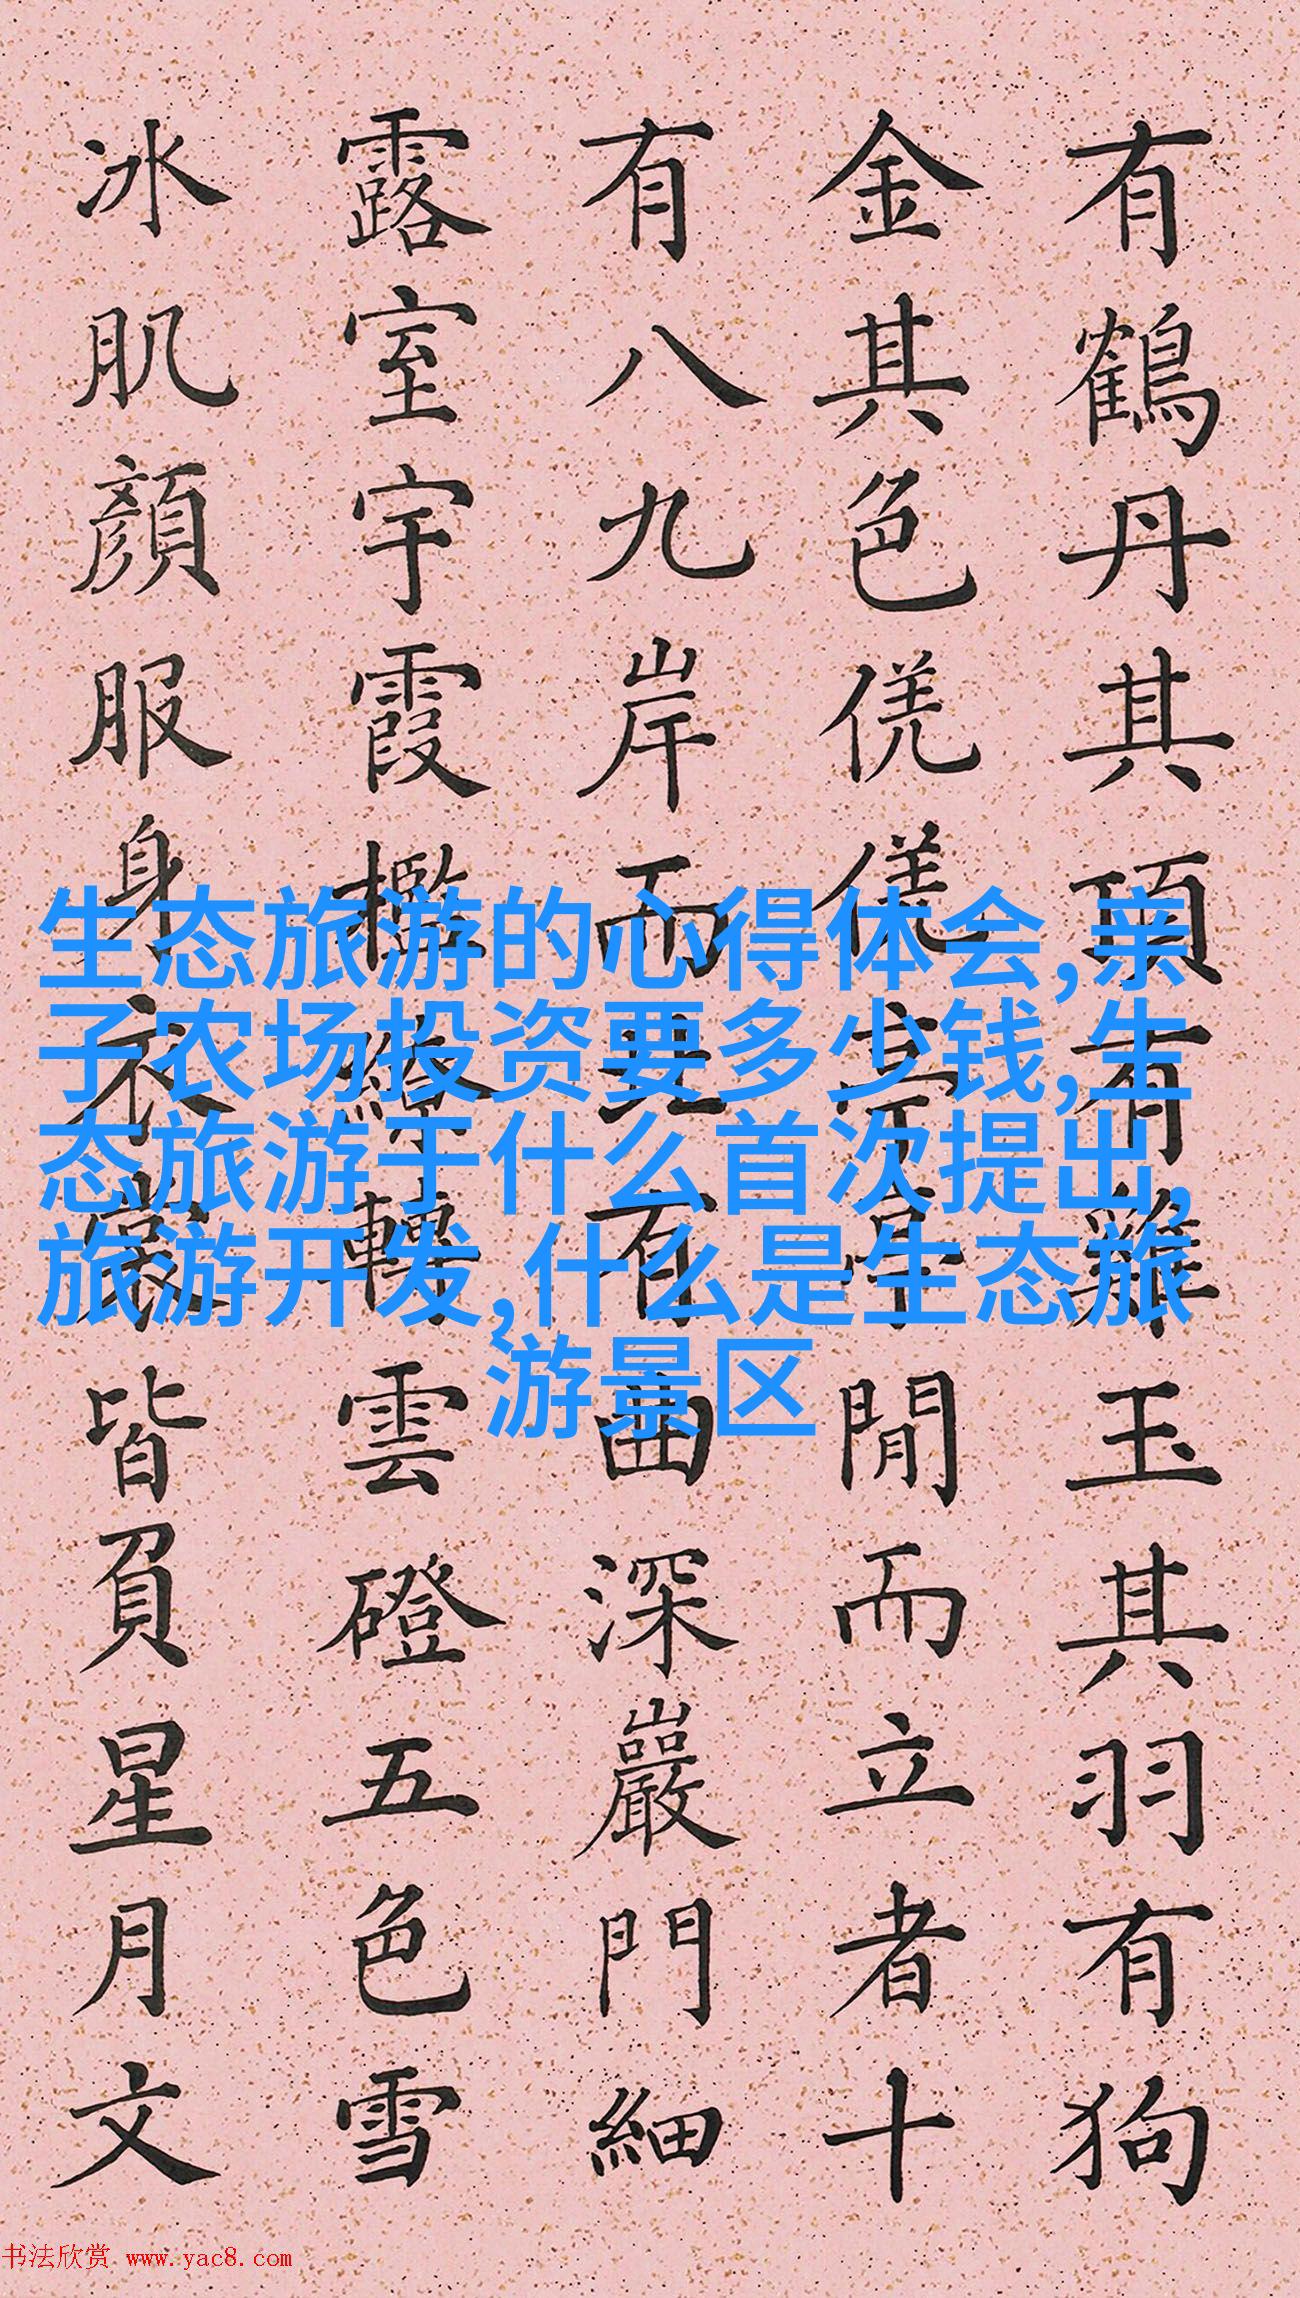 有鶴丹其頂有雞玉其羽有狗
金其色亭亭閒而立者十
有八九岸而有曲深巖門細
露室宇霞檻繚轉雲磴五色雪
冰肌顏服身衣皆負星月文
生态旅游的心得体会,亲
子农场投资要多少钱,生
态旅游于什么首次提出,
旅游开发,什么是生态旅
游景区
书法欣赏 www.yac8.com